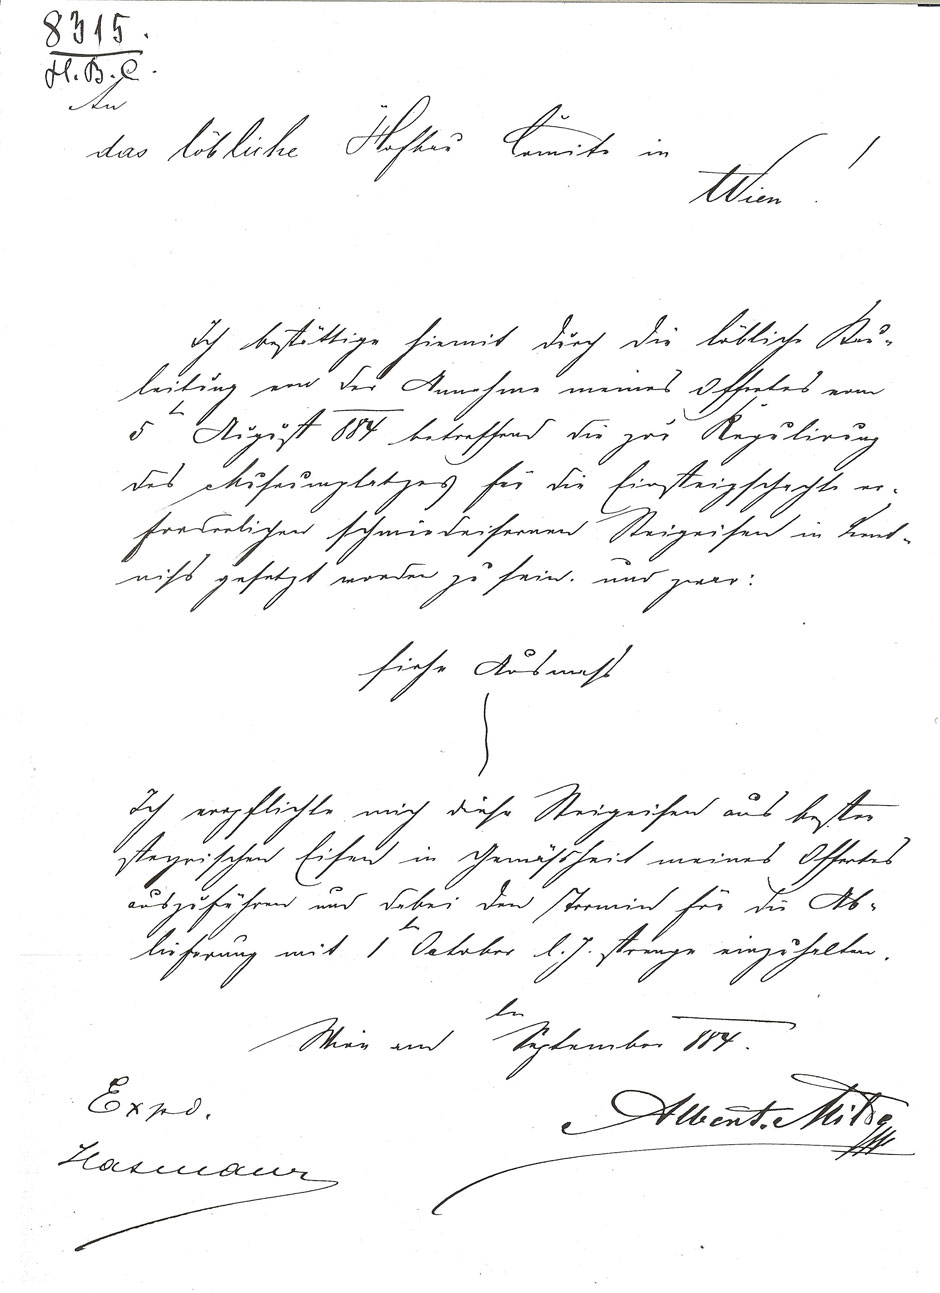 8315.
H.B.C.
An
das löbliche Hofbau Comité in
Wien !
Ich bestättige hiemit durch die löbliche Bau-
leitung von der Annahme meines Offertes vom
5tn August 884 betreffend die zur Regulirung
des Museumplatzes für die Einsteigschachte er-
forderlichen schmiedeisernen Steigeisen in Kent-
niß gesetzt worden zu sein. und zwar:
siehe Ausmaß
Ich verpflichte mich diese Steigeisen aus bester
steyrischen Eisen in Gemäßheit meines Offertes
auszuführen und dabei den Termin für die Ab-
lieferung mit 1tn October l. J. strenge einzuhalten.
Wien am tn September 884.
Exped.
Albert. Milde